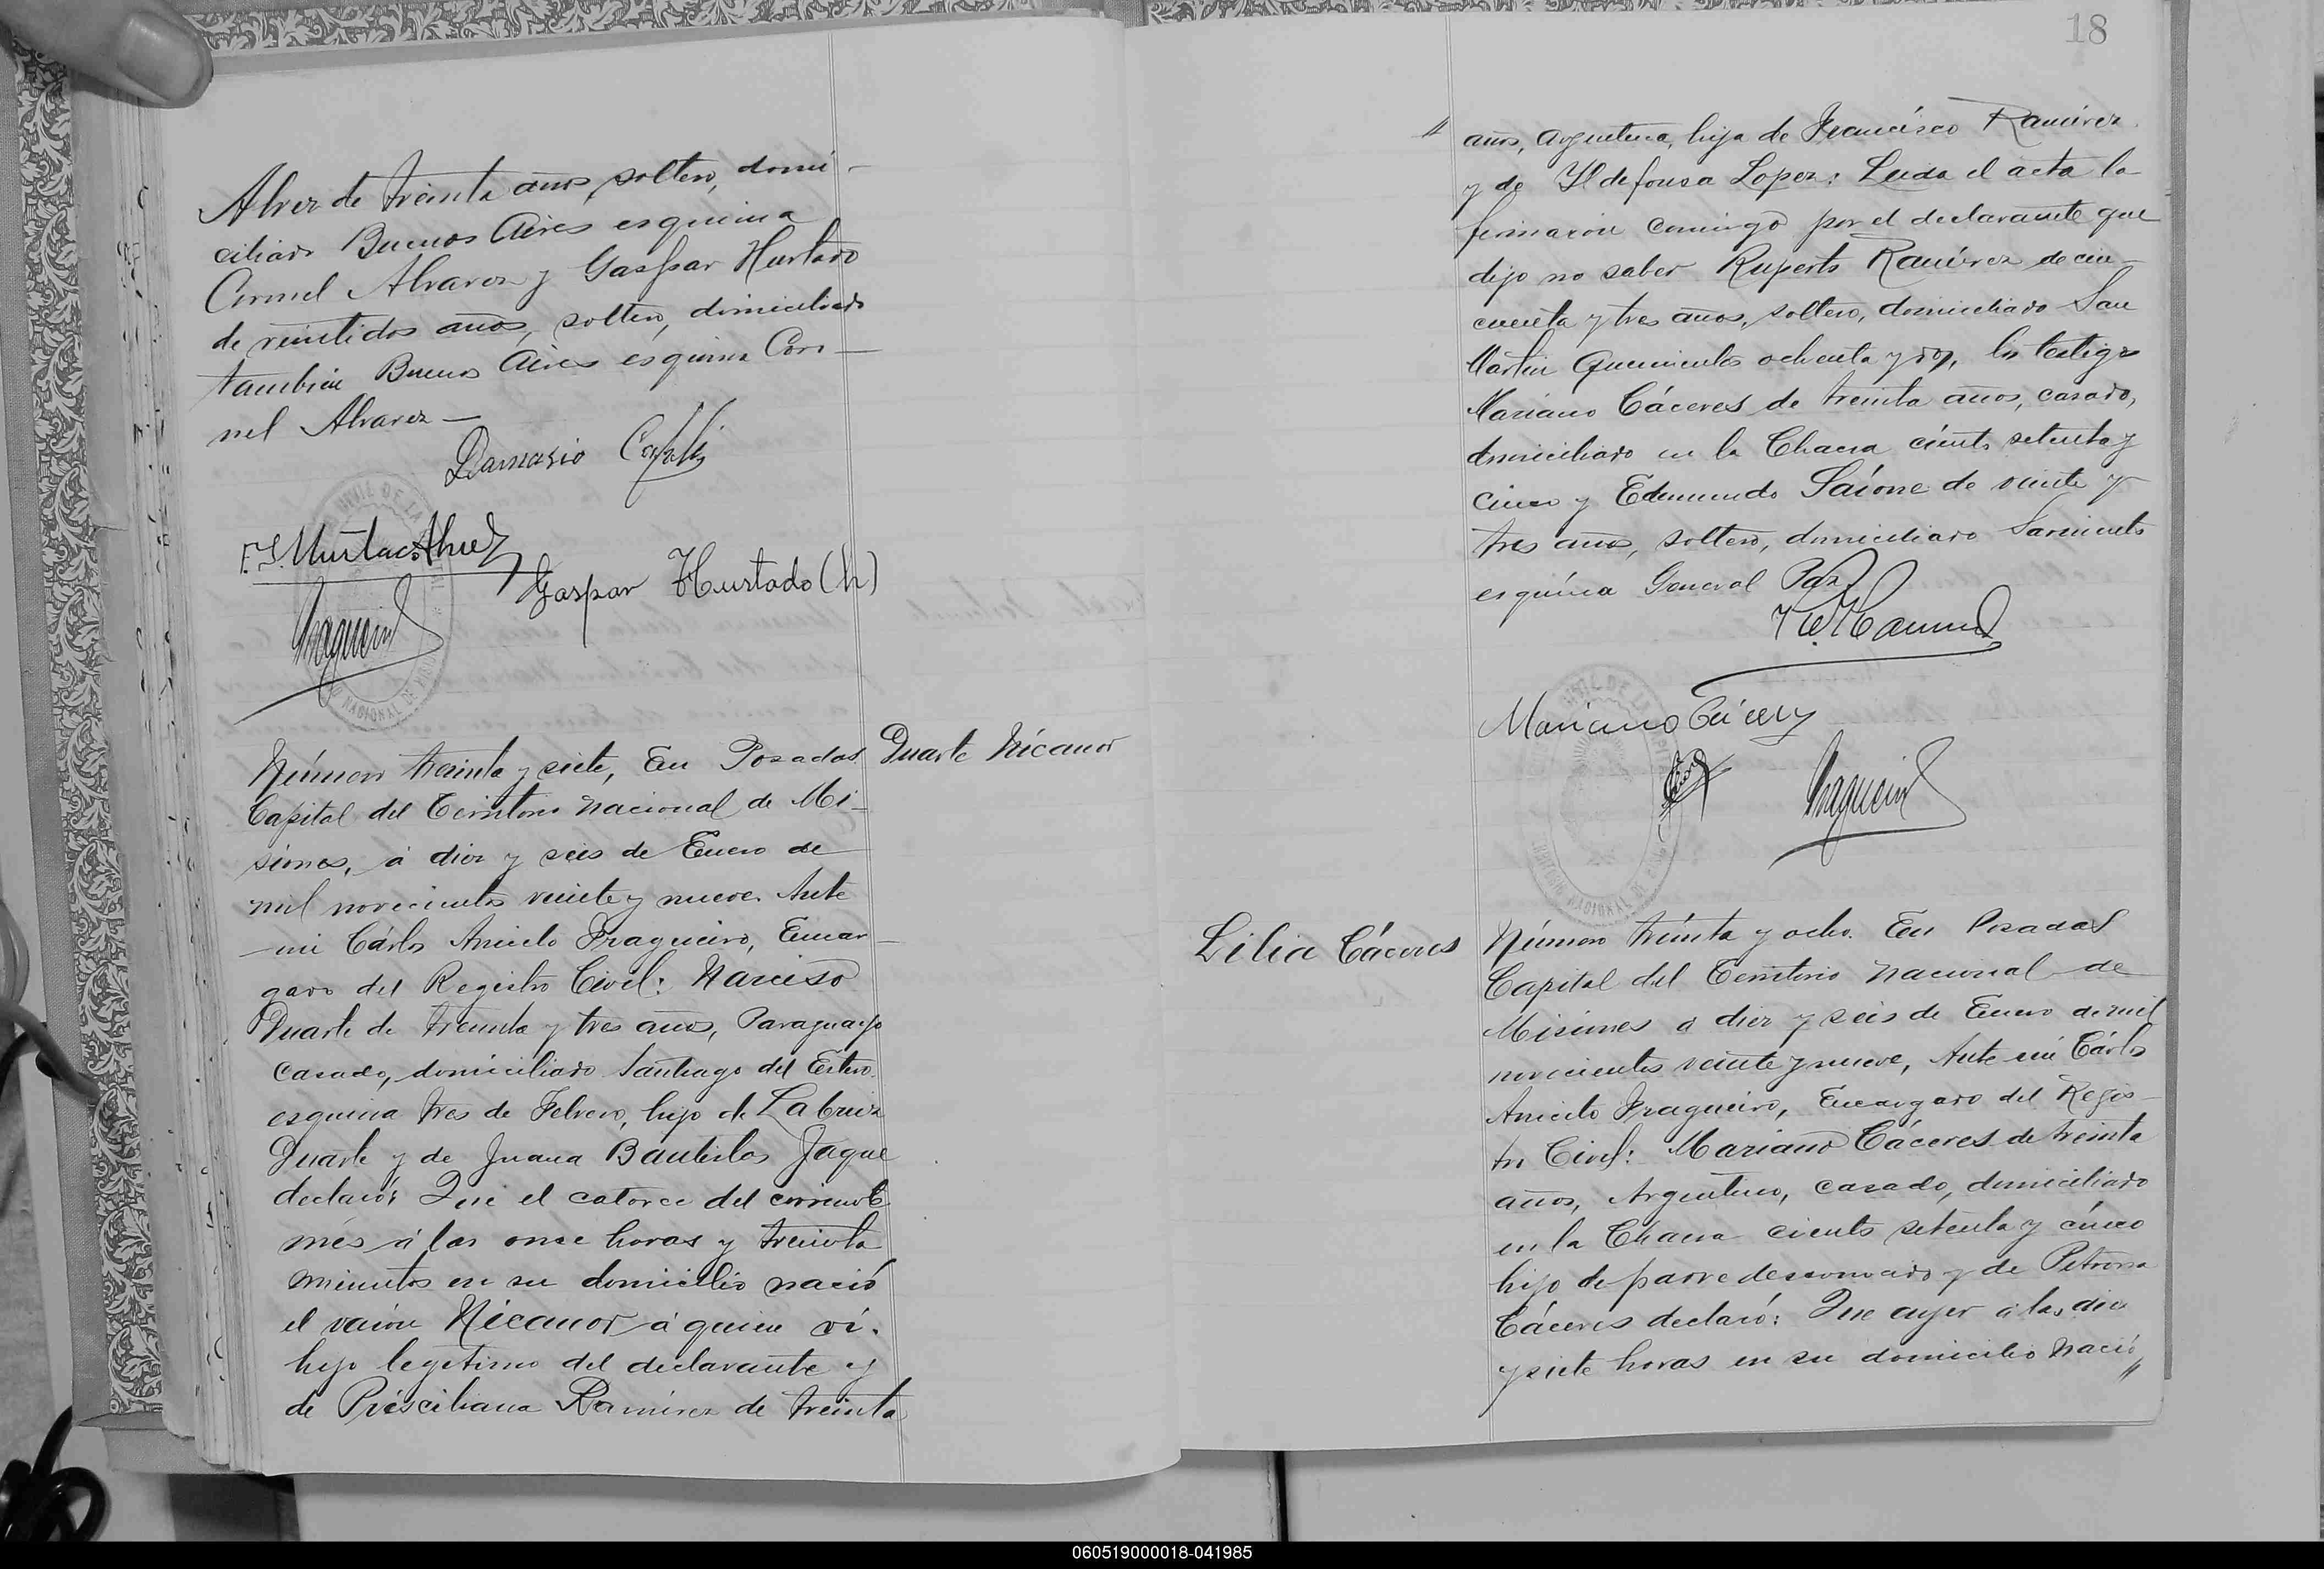 Alvez de treinta años, soltero, domi-
ciliado Buenos Aires esquina
Coronel Alvarez y Gaspar Hurtado
de veintidos años, soltero, domiciliado
tambien Buenos Aires esquina Coro-
nel Alvarez —
Damasio
Gaspar Hurtado (h)
Número treinta y siete, En Posadas
Duarte Nicanor
Capital del Territorio Nacional de Mi-
siones, á diez y seis de Enero de
mil novecientos veinte y nueve. Ante
mi Cárlos Aniceto Fragueiro, Encar-
gado del Registro Civil: Narciso
Duarte de treinta y tres años, Paraguayo
casado, domiciliado Santiago del Estero
esquina tres de Febrero, hijo de
Duarte y de Juana Bautista Jaque
declaró: Que el catorce del corriente
més á las once horas y treinta
minutos en su domicilio nació
el varón Nicanor á quien ví.
hijo legítimo del declarante y
de Prisciliana Ramirez de treinta
18
" años, argentina, hija de Francisco Ramirez
y de Ildefonsa Lopez: Leida el acta la
firmaron conmigo por el declarante que
dijo no saber Ruperto Ramirez de cin-
cuenta y tres años, soltero, domiciliado San
Martin quinientos ochenta y dos, los testigos
Mariano Cáceres de treinta años, casado,
domiciliado en la Chacra ciento setenta y
cinco y Edmundo Saíone de veinte y
tres años, soltero, domiciliado Sarmiento
esquina General Paz
Mariano Cáceres
Lilia Cáceres
Número treinta y ocho. En Posadas
Capital del Territorio Nacional de
Misiones á diez y seis de Enero de mil
novecientos veinte y nueve, Ante mí Cárlos
Aniceto Fragueiro, Encargado del Regis-
tro Civil: Mariano Cáceres de treinta
años, Argentino, casado, domiciliado
en la Chacra ciento setenta y cinco
hijo de padre desconocido y de Petrona
Cáceres declaró: Que ayer á las diez
y siete horas en su domicilio nació "
060519000018-041985